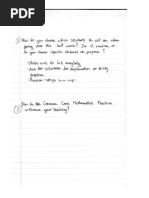 ① How do you choose which students to call on when
going over the bell work? Is it random, or
do you choose specific students on purpose?
- Make sure to hit everybody
- Ask for volunteers for explanation or strategy
direction
- Random - strips in a cup
② How do the Common Core Mathematical Practices
influence your teaching?